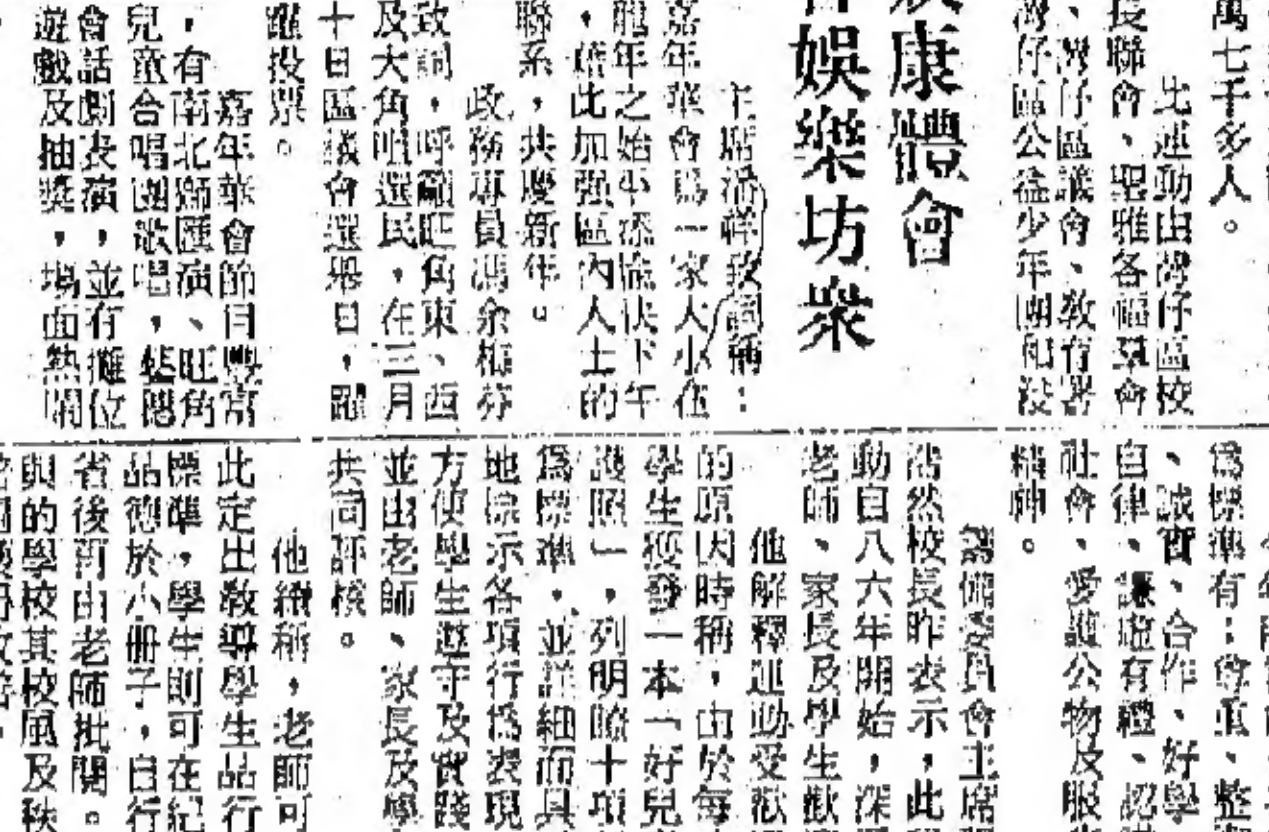 萬七千多人。
此運動由灣仔區校
長聯會、聖雅各福羣會
、灣仔區議會、教育署
灣仔區公益少年團和發
康體會
娛樂坊衆
主席潘祥致詞稱：
嘉年華會爲一家大小在
龍年之始共添愉快下午
，藉此加强區內人士的
聯系，共慶新年。
政務專員馮余梅芬
致詞，呼籲旺角東、西
及大角咀選民，在三月
十日區議會選舉日，踴
躍投票。
嘉年華會節目豐富
，有南北獅匯演、旺角
兒童合唱團歌唱，
會話劇表演，並有攤位
遊戲及抽獎，塲面熱鬧
爲標準有：尊重、整
、誠實、合作、好學
自律、謙遜有禮、認
社會、愛護公物及服
精神。
籌備委員會主席
浩然校長昨表示，此
動自八六年開始，深
老師、家長及學生歡
他解釋運動受歡
的原因時稱，由於每
學生獲發一本「好兒
護照」，列明瞭十項
爲標準，並詳細而具
地標示各項行爲表現
方便學生遵守及實踐
並由老師、家長及學
共同評核。
他續稱，老師可
此定出教導學生品行
標準，學生則可在紀
品德於小册子，自行
省後再由老師批閱。
與的學校其校風及秩